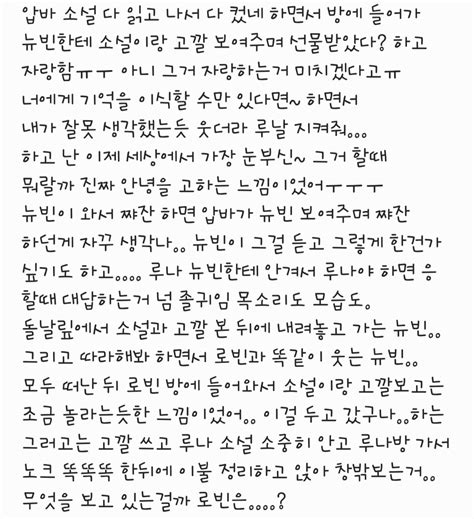 압바 소설 다 읽고 나서 다 컸네 하면서 방에 들어가
뉴빈한테 소설이랑 고깔 보여주며 선물받았다? 하고
자랑함ㅠㅜ 아니 그거 자랑하는거 미치겠다고ㅠ
너에게 기억을 이식할 수만 있다면~ 하면서
내가 잘못 생각했는듯 웃더라 루날 지켜줘,,,
하고 난 이제 세상에서 가장 눈부신~ 그거 할때
뭐랄까 진짜 안녕을 고하는 느낌이었어ㅜㅜㅜ
뉴빈이 와서 쨔잔 하면 압바가 뉴빈 보여주며 쨔잔
하던게 자꾸 생각나,, 뉴빈이 그걸 듣고 그렇게 한건가
싶기도 하고,,,, 루나 뉴빈한테 안겨서 루나야 하면 응
할때 대답하는거 넘 졸귀임 목소리도 모습도,
돌날맆에서 소설과 고깔 본 뒤에 내려놓고 가는 뉴빈,,
그리고 따라해봐 하면서 로빈과 똑같이 웃는 뉴빈,,
모두 떠난 뒤 로빈 방에 들어와서 소설이랑 고깔보고는
조금 놀라는듯한 느낌이었어,, 이걸 두고 갔구나,,하는
그러고는 고깔 쓰고 루나 소설 소중히 안고 루나방 가서
노크 똑똑똑 한뒤에 이불 정리하고 앉아 창밖보는거,,
무엇을 보고 있는걸까 로빈은,,,,?